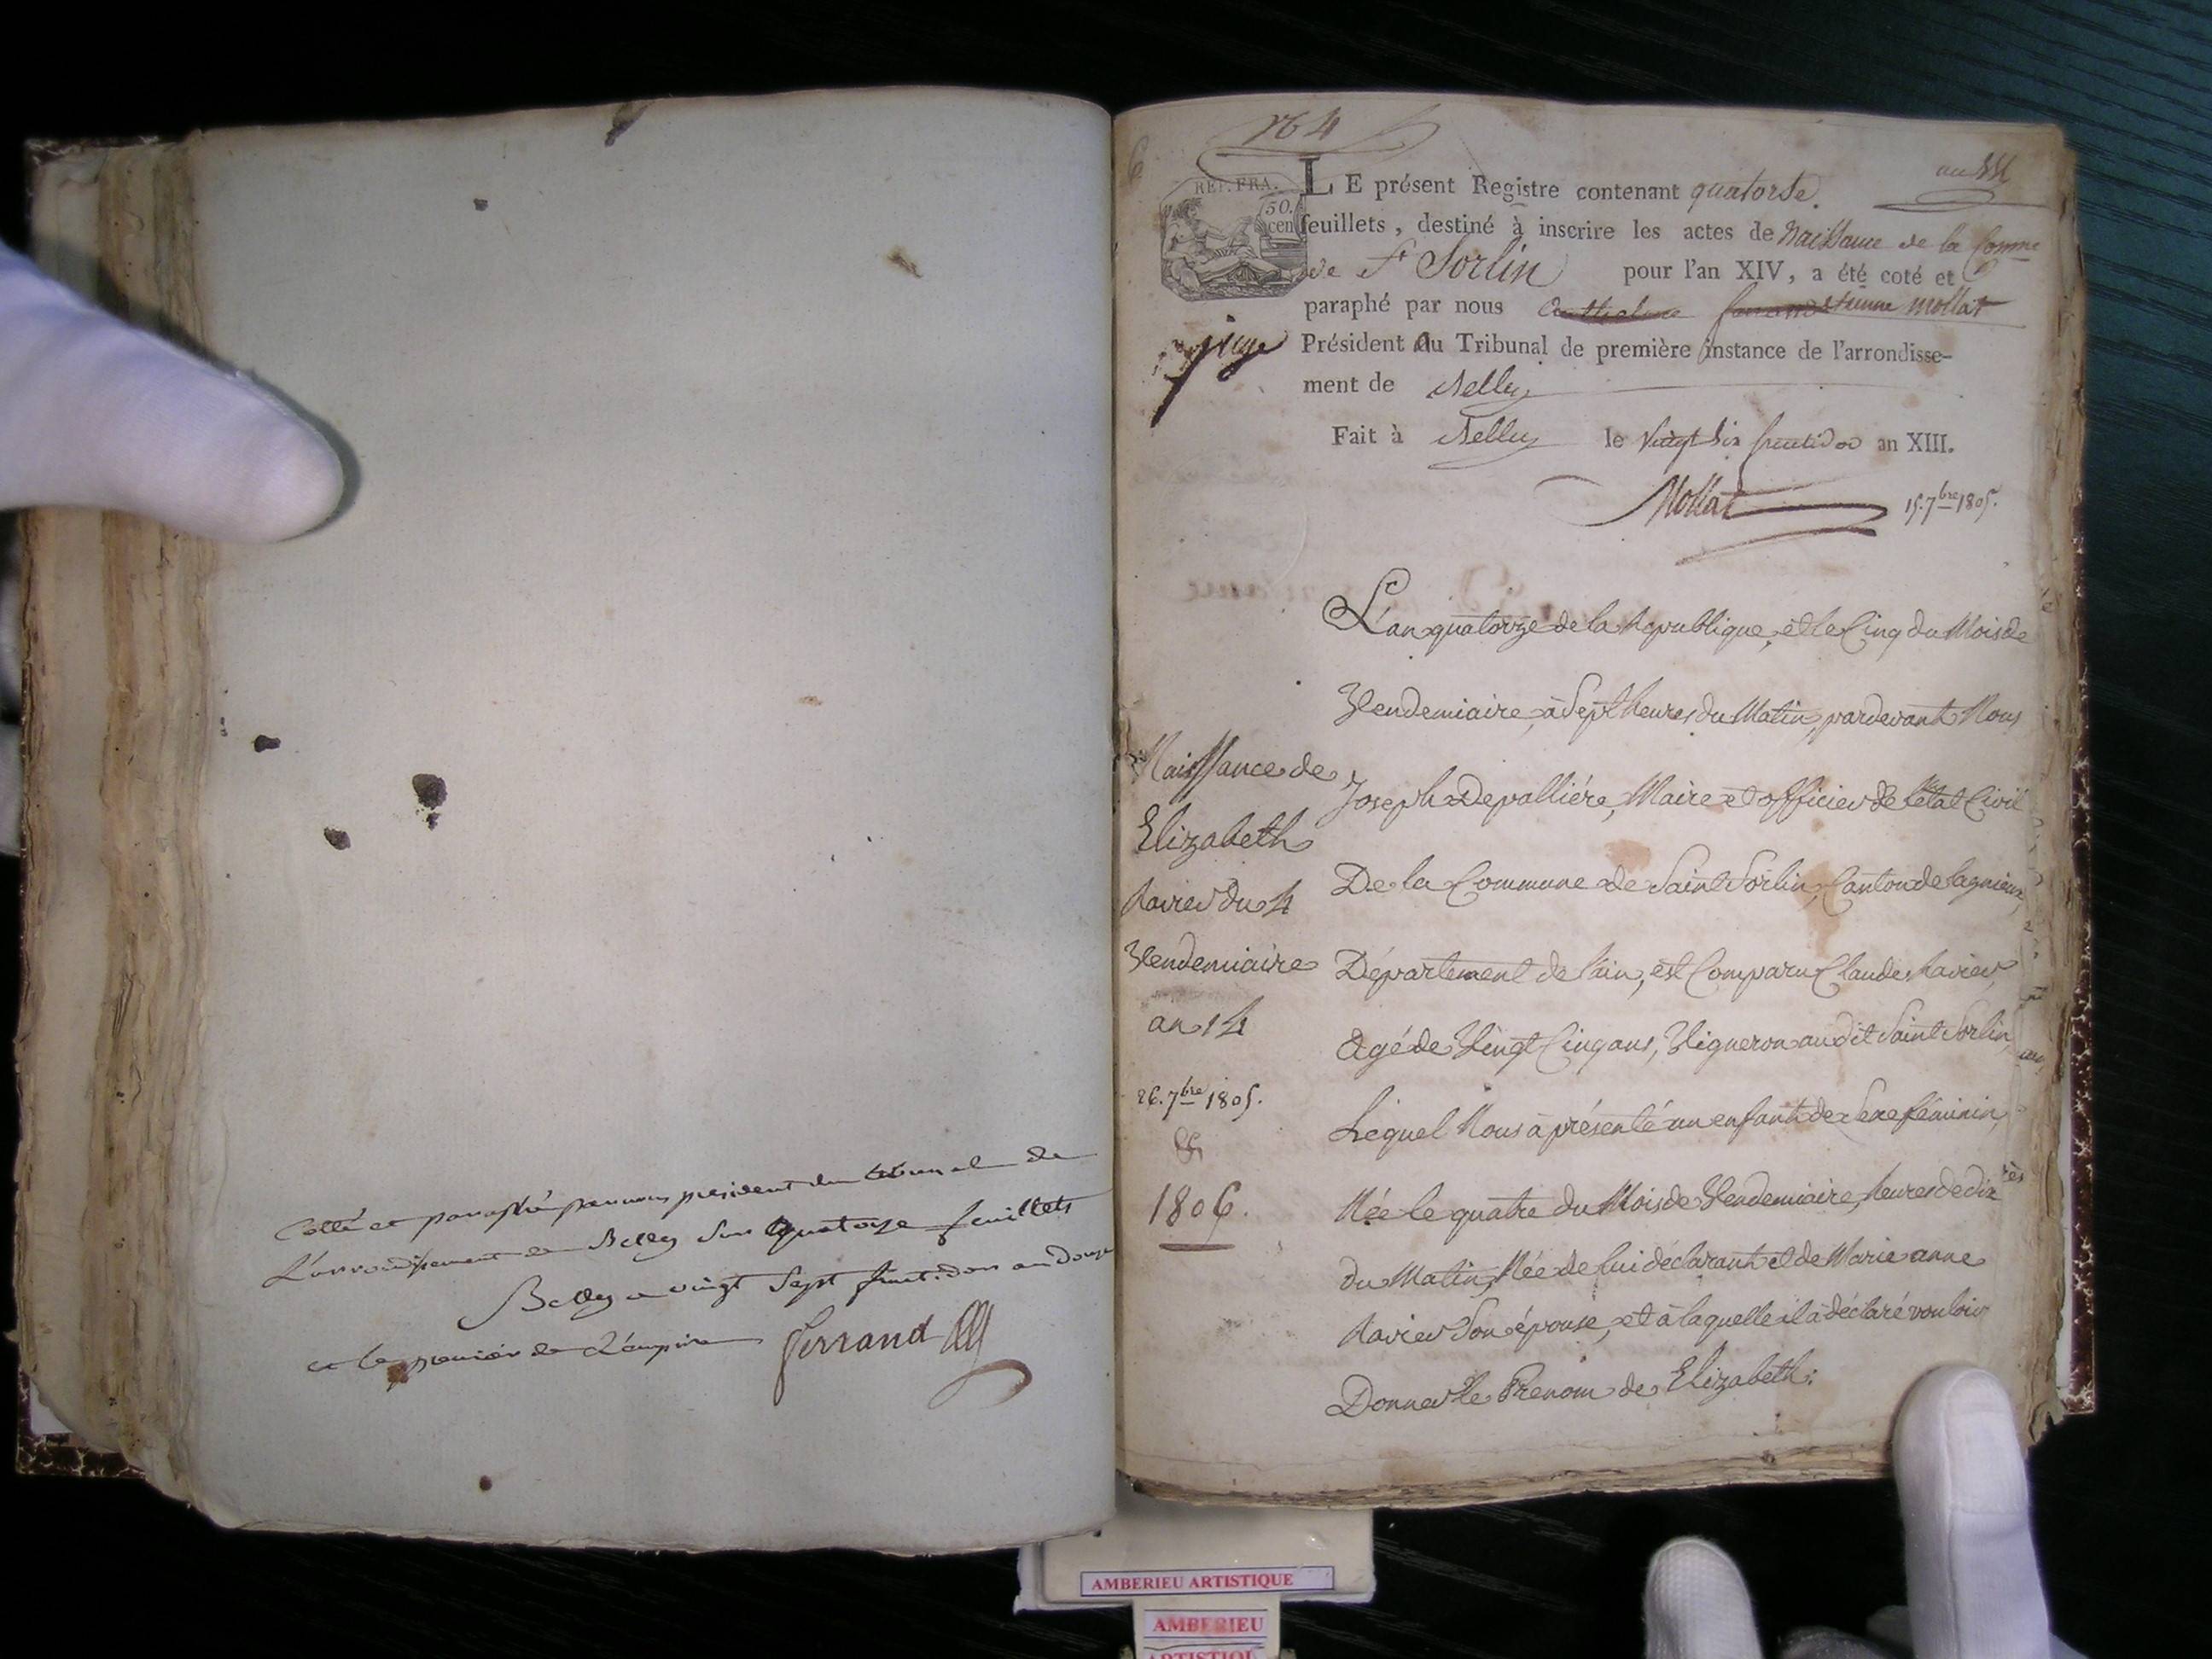 Collé et paraphé par nous president du tribunal de
L'arrondissement de Belley Sur quatorze feuillets
Belley ce vingt Sept fructidor an douze
et le premier de L'empire Ferrand
n.º 4
an XIV
REP. FRA.
50.
cen
LE présent Registre contenant quatorse
feuillets, destiné à inscrire les actes de Naissance de la Comne
de St Sorlin pour l'an XIV, a été coté et
paraphé par nous Anthelme Ferrand etienne mollat
juge Président au Tribunal de première instance de l'arrondisse-
ment de Belley
Fait à Belley le Vingt Six fructidor an XIII.
Mollat 15. 7bre 1805.
Naissance de
Elizabeth
Ravier du 4
Vendemiaire
an 14
26. 7bre 1805.
&
1806.
L'an quatorze de la Republique, et le Cinq du Mois de
Vendemiaire, à Sept heures du Matin, pardevant Nous
Joseph Depalliére, Maire et officier de l'état Civil
De la Commune de Saint Sorlin, Canton de Lagnieux,
Département de l'ain, est Comparu Claude Ravier,
Agé de Vingt Cinq ans, Vigneron audit Saint Sorlin,
Lequel Nous à présenté un enfant de Sexe féminin,
Née le quatre du Mois de Vendemiaire, heures de dix
du Matin, Née de lui déclarant et de Marie anne
Ravier Son épouse, et à laquelle il à déclaré vouloir
Donner le Prenom de Elizabeth:
AMBERIEU ARTISTIQUE
AMBERIEU
ARTISTIQUE